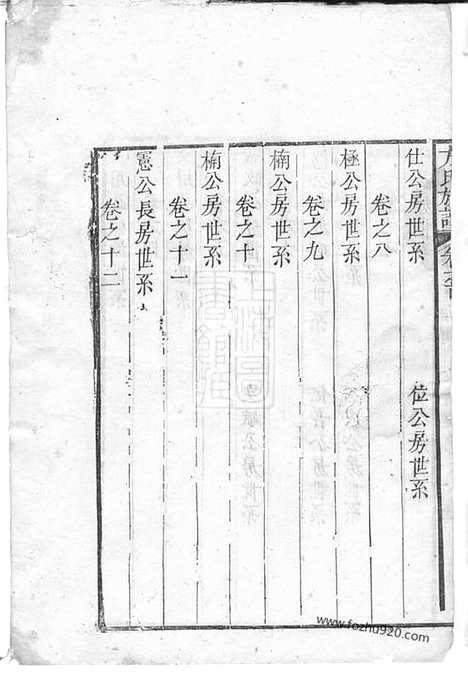 仕公房世系　位公房世系
卷之八
極公房世系
卷之九
楠公房世系
卷之十
楠公房世系
卷之十一
憲公長房世系
卷之十二
www.fozhu920.com